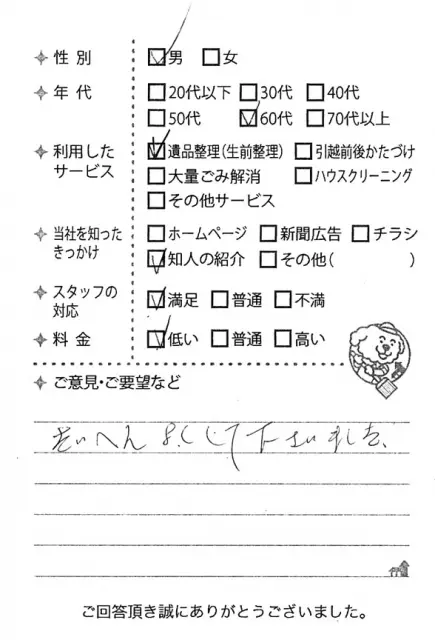 性別 ☑男 □女
年代 □20代以下 □30代 □40代
□50代 ☑60代 □70代以上
利用した
サービス ☑遺品整理(生前整理) □引越前後かたづけ
□大量ごみ解消 □ハウスクリーニング
□その他サービス
当社を知った
きっかけ □ホームページ □新聞広告 □チラシ
☑知人の紹介 □その他( )
スタッフの
対応 ☑満足 □普通 □不満
料金 ☑低い □普通 □高い
ご意見・ご要望など
たいへんよくして下さいました、
ご回答頂き誠にありがとうございました。